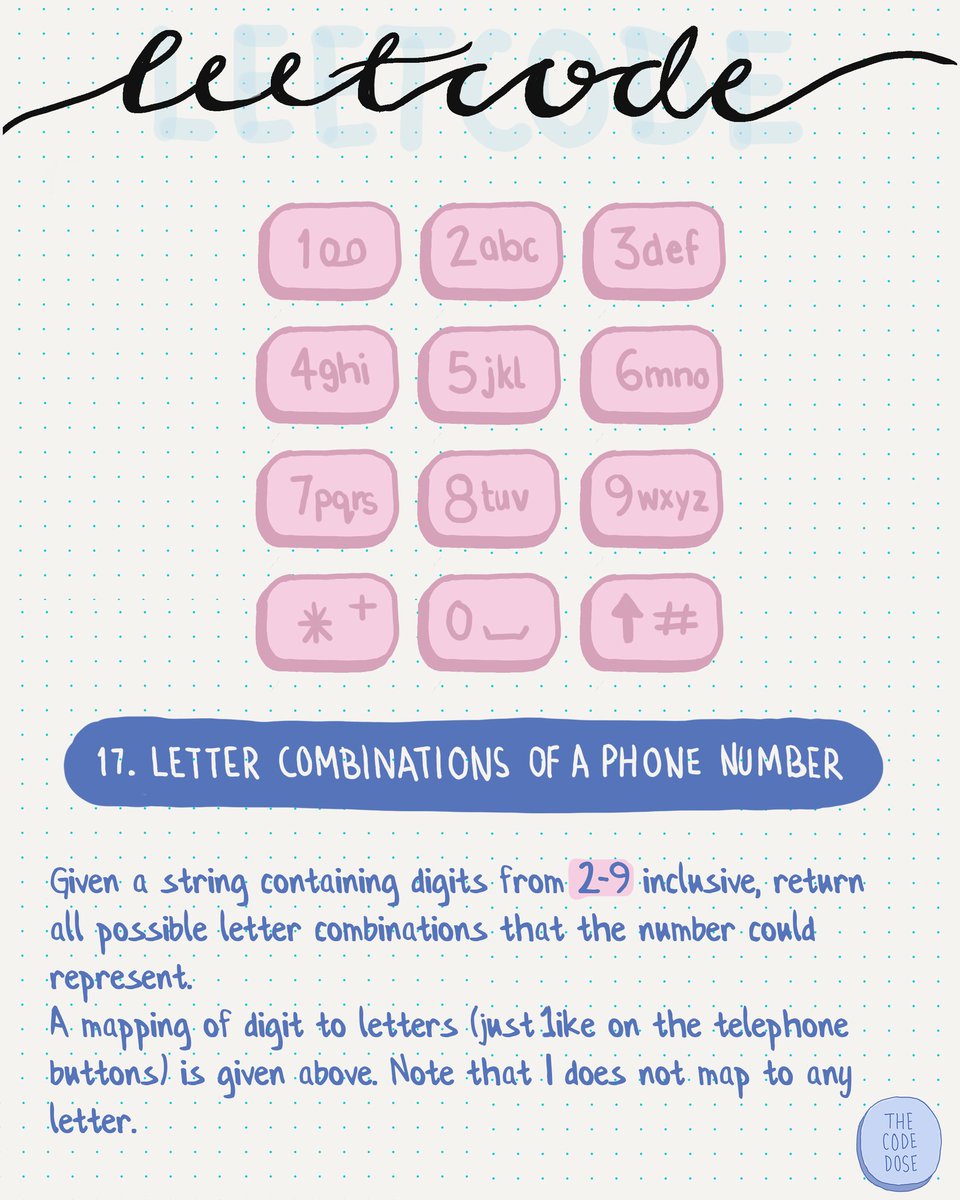 leetcode
LEETCODE
1
2abc
3def
4ghi
5jkl
6mno
7pqrs
8tuv
9wxyz
* +
0
↑#
17. LETTER COMBINATIONS OF A PHONE NUMBER
Given a string containing digits from 2-9 inclusive, return
all possible letter combinations that the number could
represent.
A mapping of digit to letters (just like on the telephone
buttons) is given above. Note that 1 does not map to any
letter.
THE
CODE
DOSE